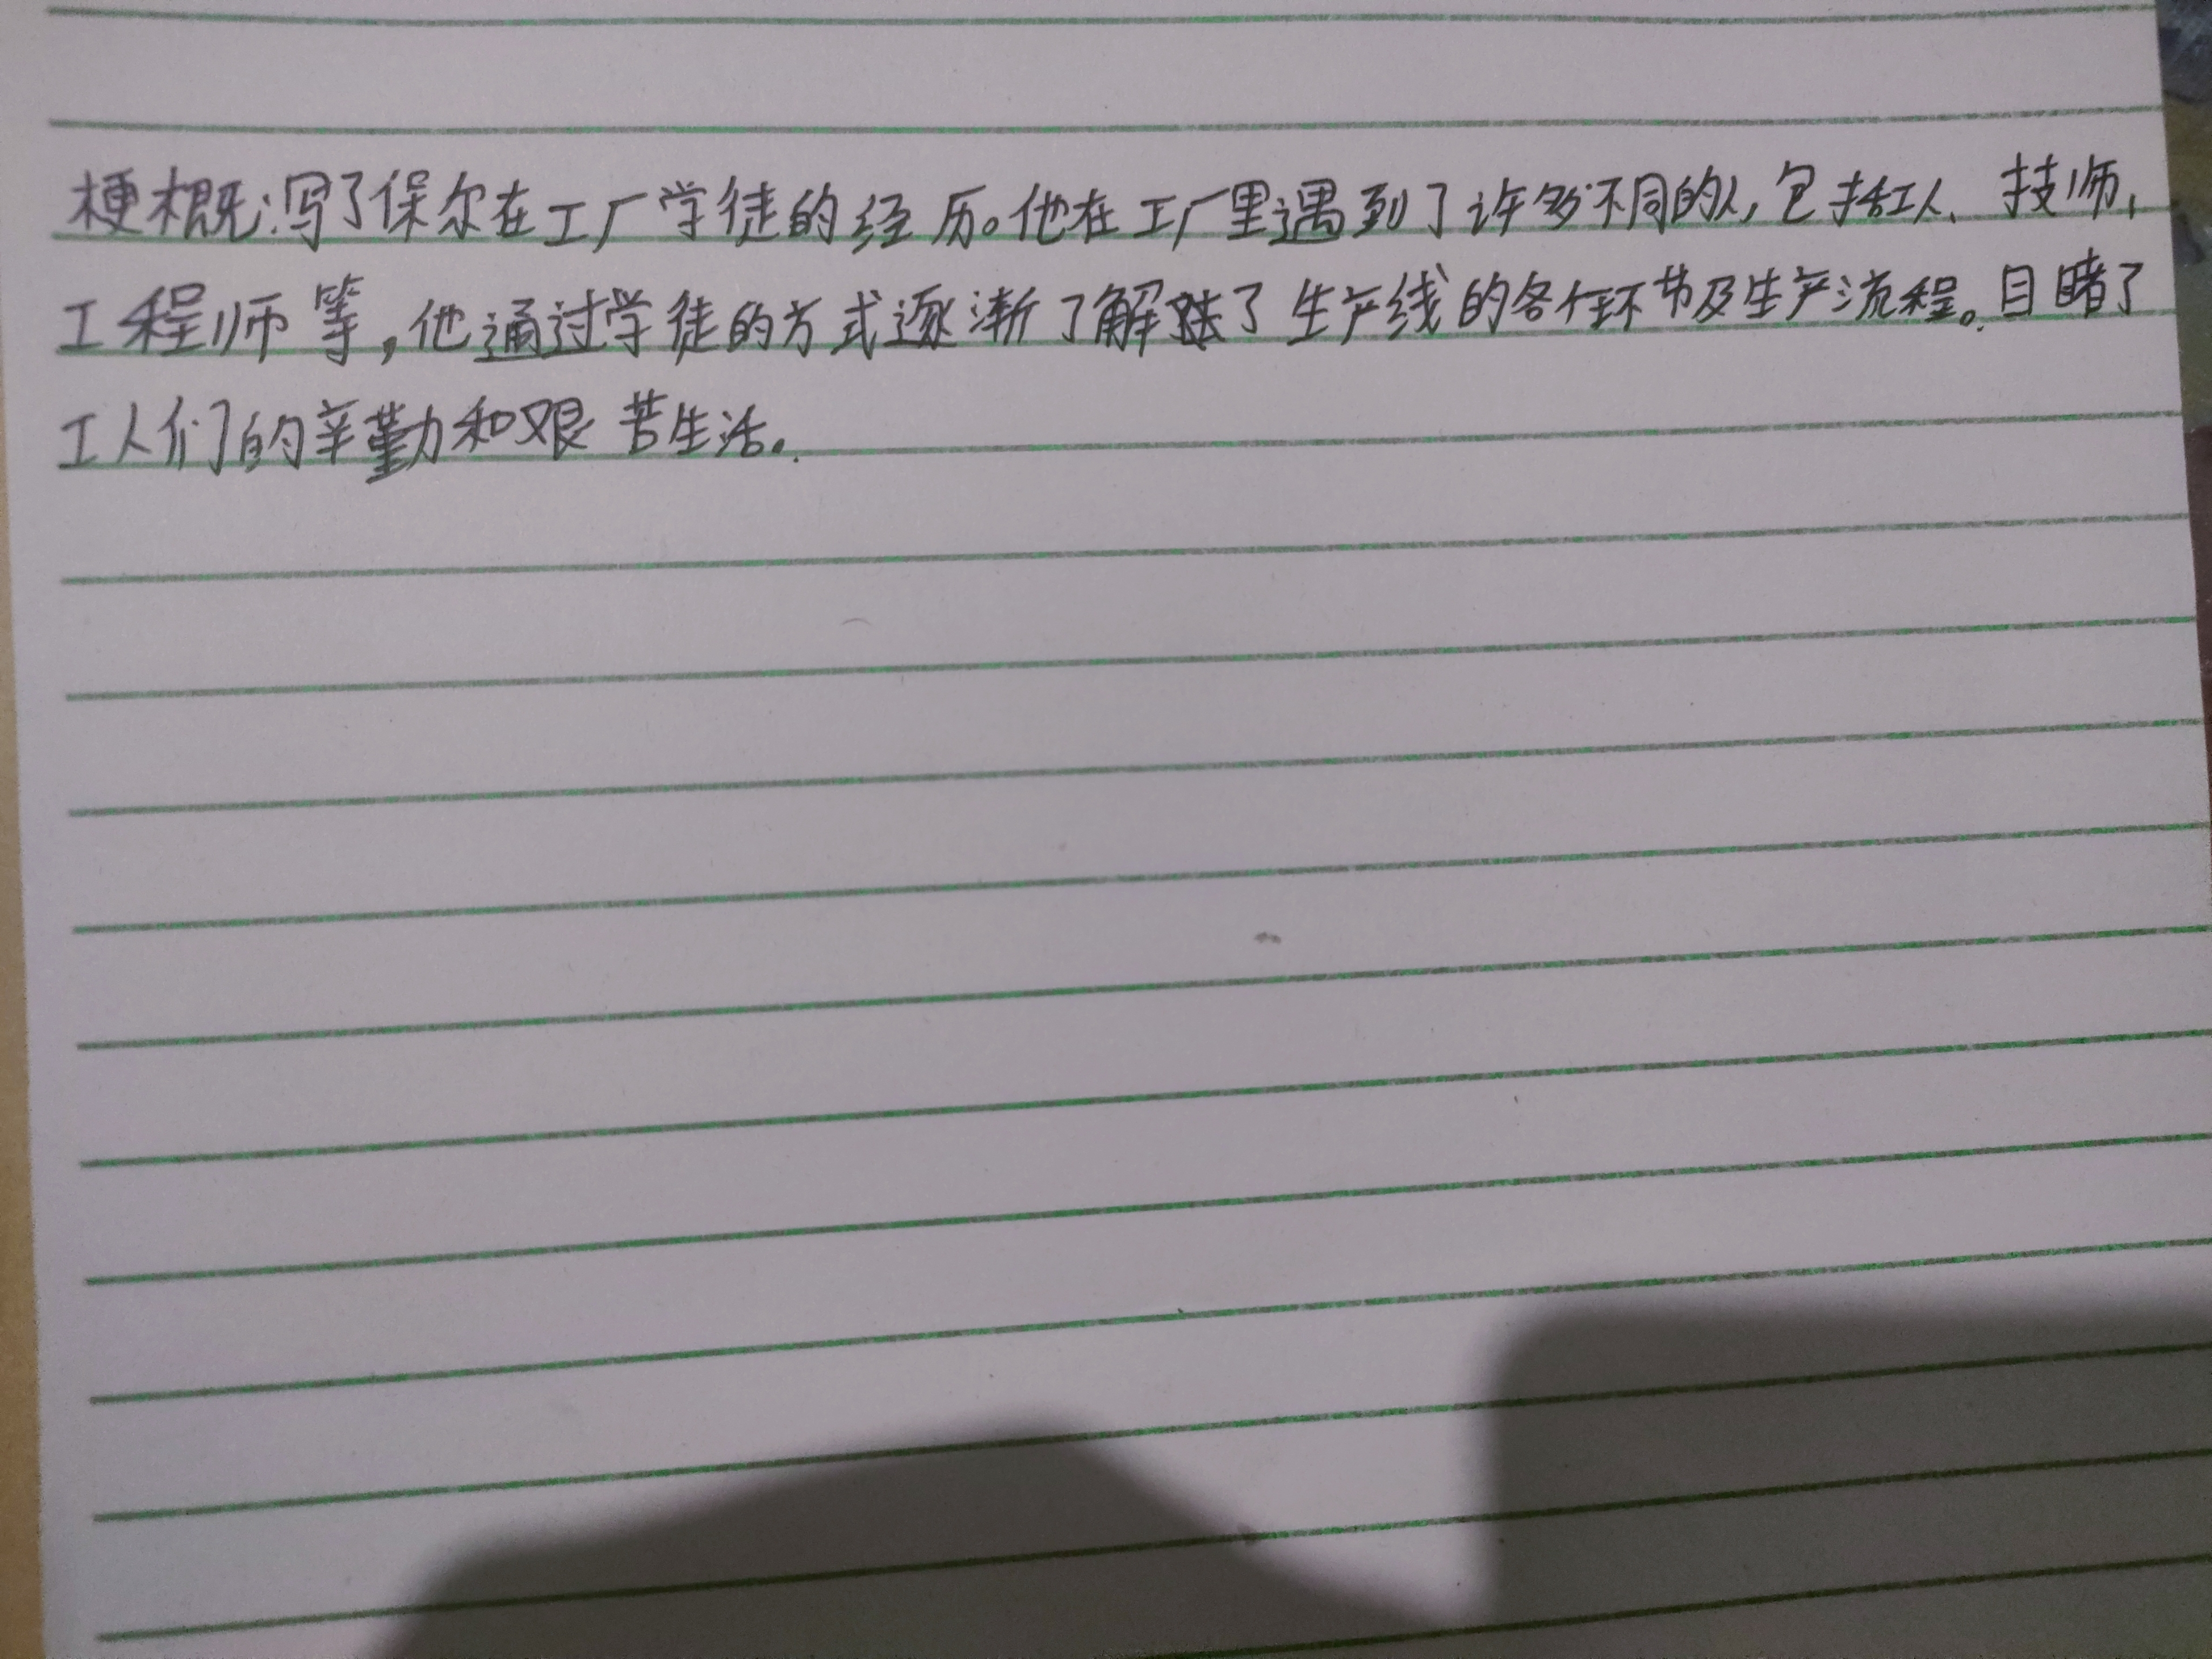 梗概:写了保尔在工厂学徒的经历。他在工厂里遇到了许多不同的人,包括工人、技师、
工程师等,他通过学徒的方式逐渐了解了生产线的各个环节及生产流程。目睹了
工人们的辛勤和艰苦生活。